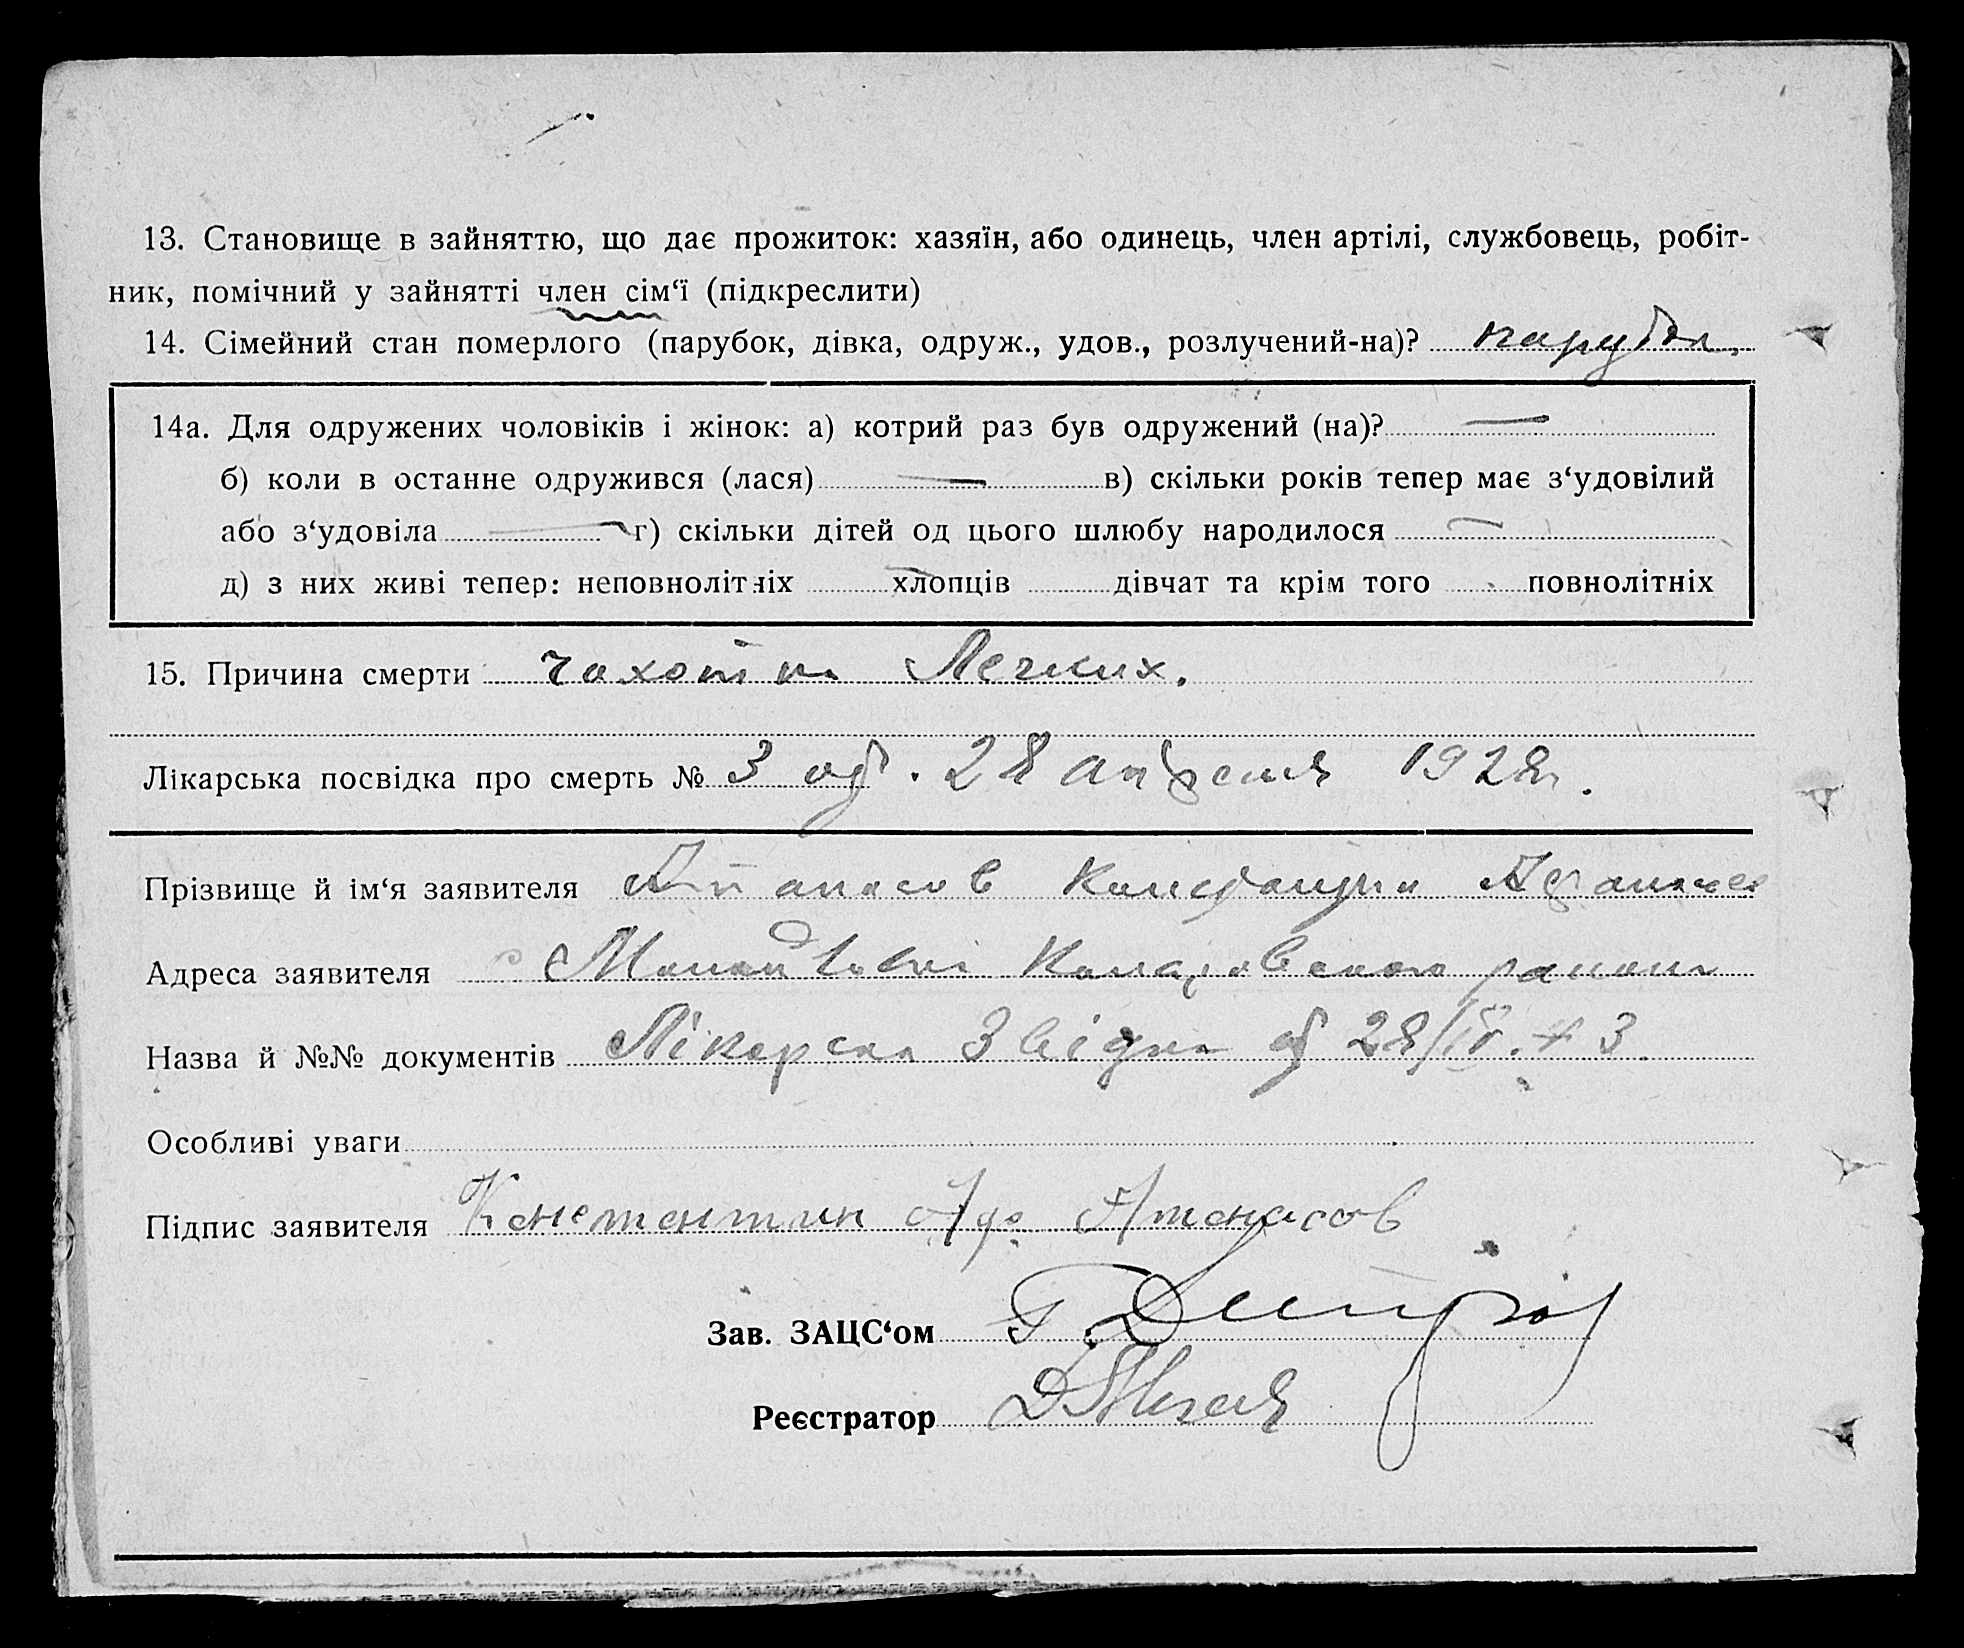 13. Становище в зайняттю, що дає прожиток: хазяїн, або одинець, член артілі, службовець, робіт-
ник, помічний у зайнятті член сім‘ї (підкреслити)
14. Сімейний стан померлого (парубок, дівка, одруж., удов., розлучений-на)? парубок
14а. Для одружених чоловіків і жінок: а) котрий раз був одружений (на)? —
б) коли в останне одружився (лася) — в) скільки років тепер має з‘удовілий
або з‘удовіла — г) скільки дітей од цього шлюбу народилося —
д) з них живі тепер: неповнолітніх хлопців дівчат та крім того повнолітніх
15. Причина смерти Чахотка Легких.
Лікарська посвідка про смерть № 3 от 28 апреля 1928г.
Прізвище й ім‘я заявителя Атанасов Константин
Адреса заявителя района
Назва й №№ документів Лікарска Звідка от 28/IV. № 3.
Особливі уваги
Підпис заявителя Константин Аф. Атанасов
Зав. ЗАЦС‘ом
Реєстратор